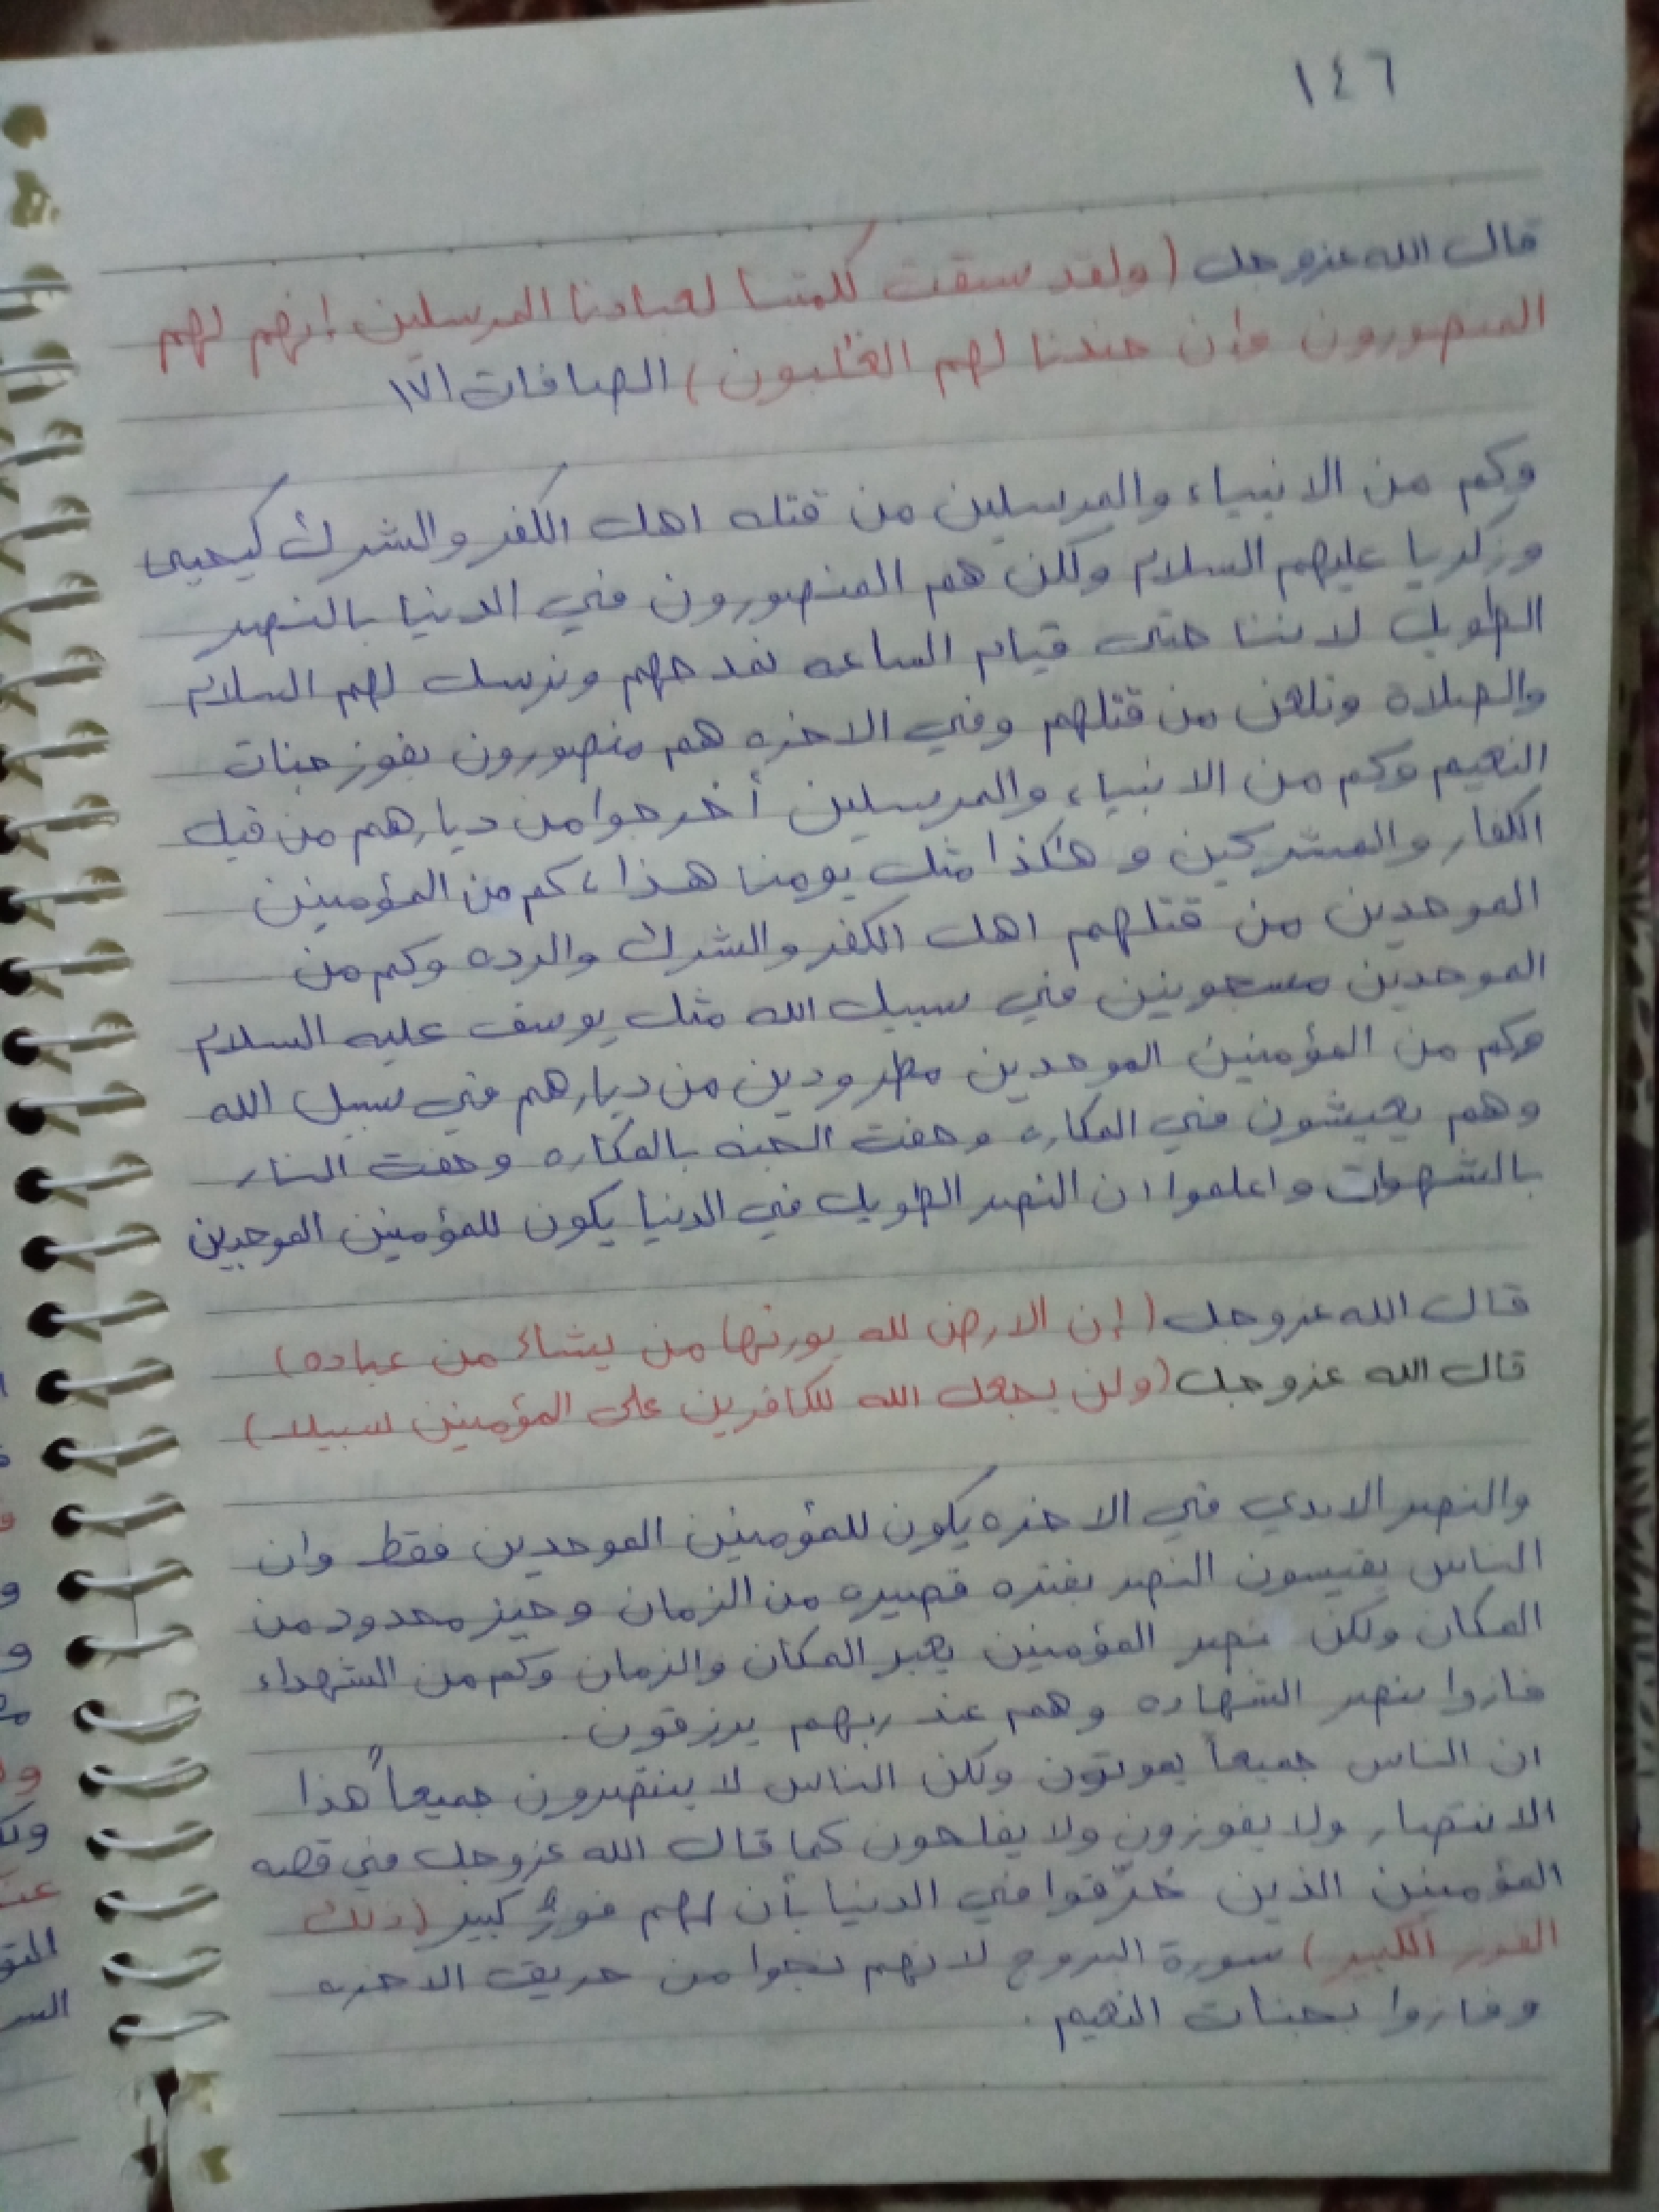 ١٤٦
قال الله عزوجل (ولقد سبقت كلمتنا لعبادنا المرسلين إنهم لهم
المنصورون وإن جندنا لهم الغلبون) الصافات ١٧١
وكم من الانبياء والمرسلين من قتله اهل الكفر والشرك كيحيى
وزكريا عليهم السلام ولكن هم المنصورون في الدنيا بالنصر
الطويل لاننا حتى قيام الساعه نمدحهم ونرسل لهم السلام
والصلاة ونلعن من قتلهم وفي الاخره هم منصورون بفوز جنات
النعيم وكم من الانبياء والمرسلين أخرجوا من ديارهم من قبل
الكفار والمشركين و هكذا مثل يومنا هذا، كم من المؤمنين
الموحدين من قتلهم اهل الكفر والشرك والرده وكم من
الموحدين مسجونين في سبيل الله مثل يوسف عليه السلام
وكم من المؤمنين الموحدين مطرودين من ديارهم في سبيل الله
وهم يعيشون في المكاره وحفت الجنه بالمكاره وحفت النار
بالشهوات واعلموا ان النصر الطويل في الدنيا يكون للمؤمنين الموحدين
قال الله عزوجل (إن الارض لله يورثها من يشاء من عباده)
قال الله عزوجل (ولن يجعل الله للكافرين على المؤمنين سبيلا)
والنصر الابدي في الاخره يكون للمؤمنين الموحدين فقط وان
الناس يقيسون النصر بفتره قصيره من الزمان وحيز محدود من
المكان ولكن نصر المؤمنين يعبر المكان والزمان وكم من الشهداء
فازوا بنصر الشهاده وهم عند ربهم يرزقون.
ان الناس جميعاً يموتون ولكن الناس لا ينتصرون جميعاً هذا
الانتصار ولا يفوزون ولا يفلحون كما قال الله عزوجل في قصه
المؤمنين الذين حُرّقوا في الدنيا بأن لهم فوزٌ كبير (ذلك
الفوز الكبير) سورة البروج لانهم نجوا من حريق الاخره
وفازوا بجنات النعيم.